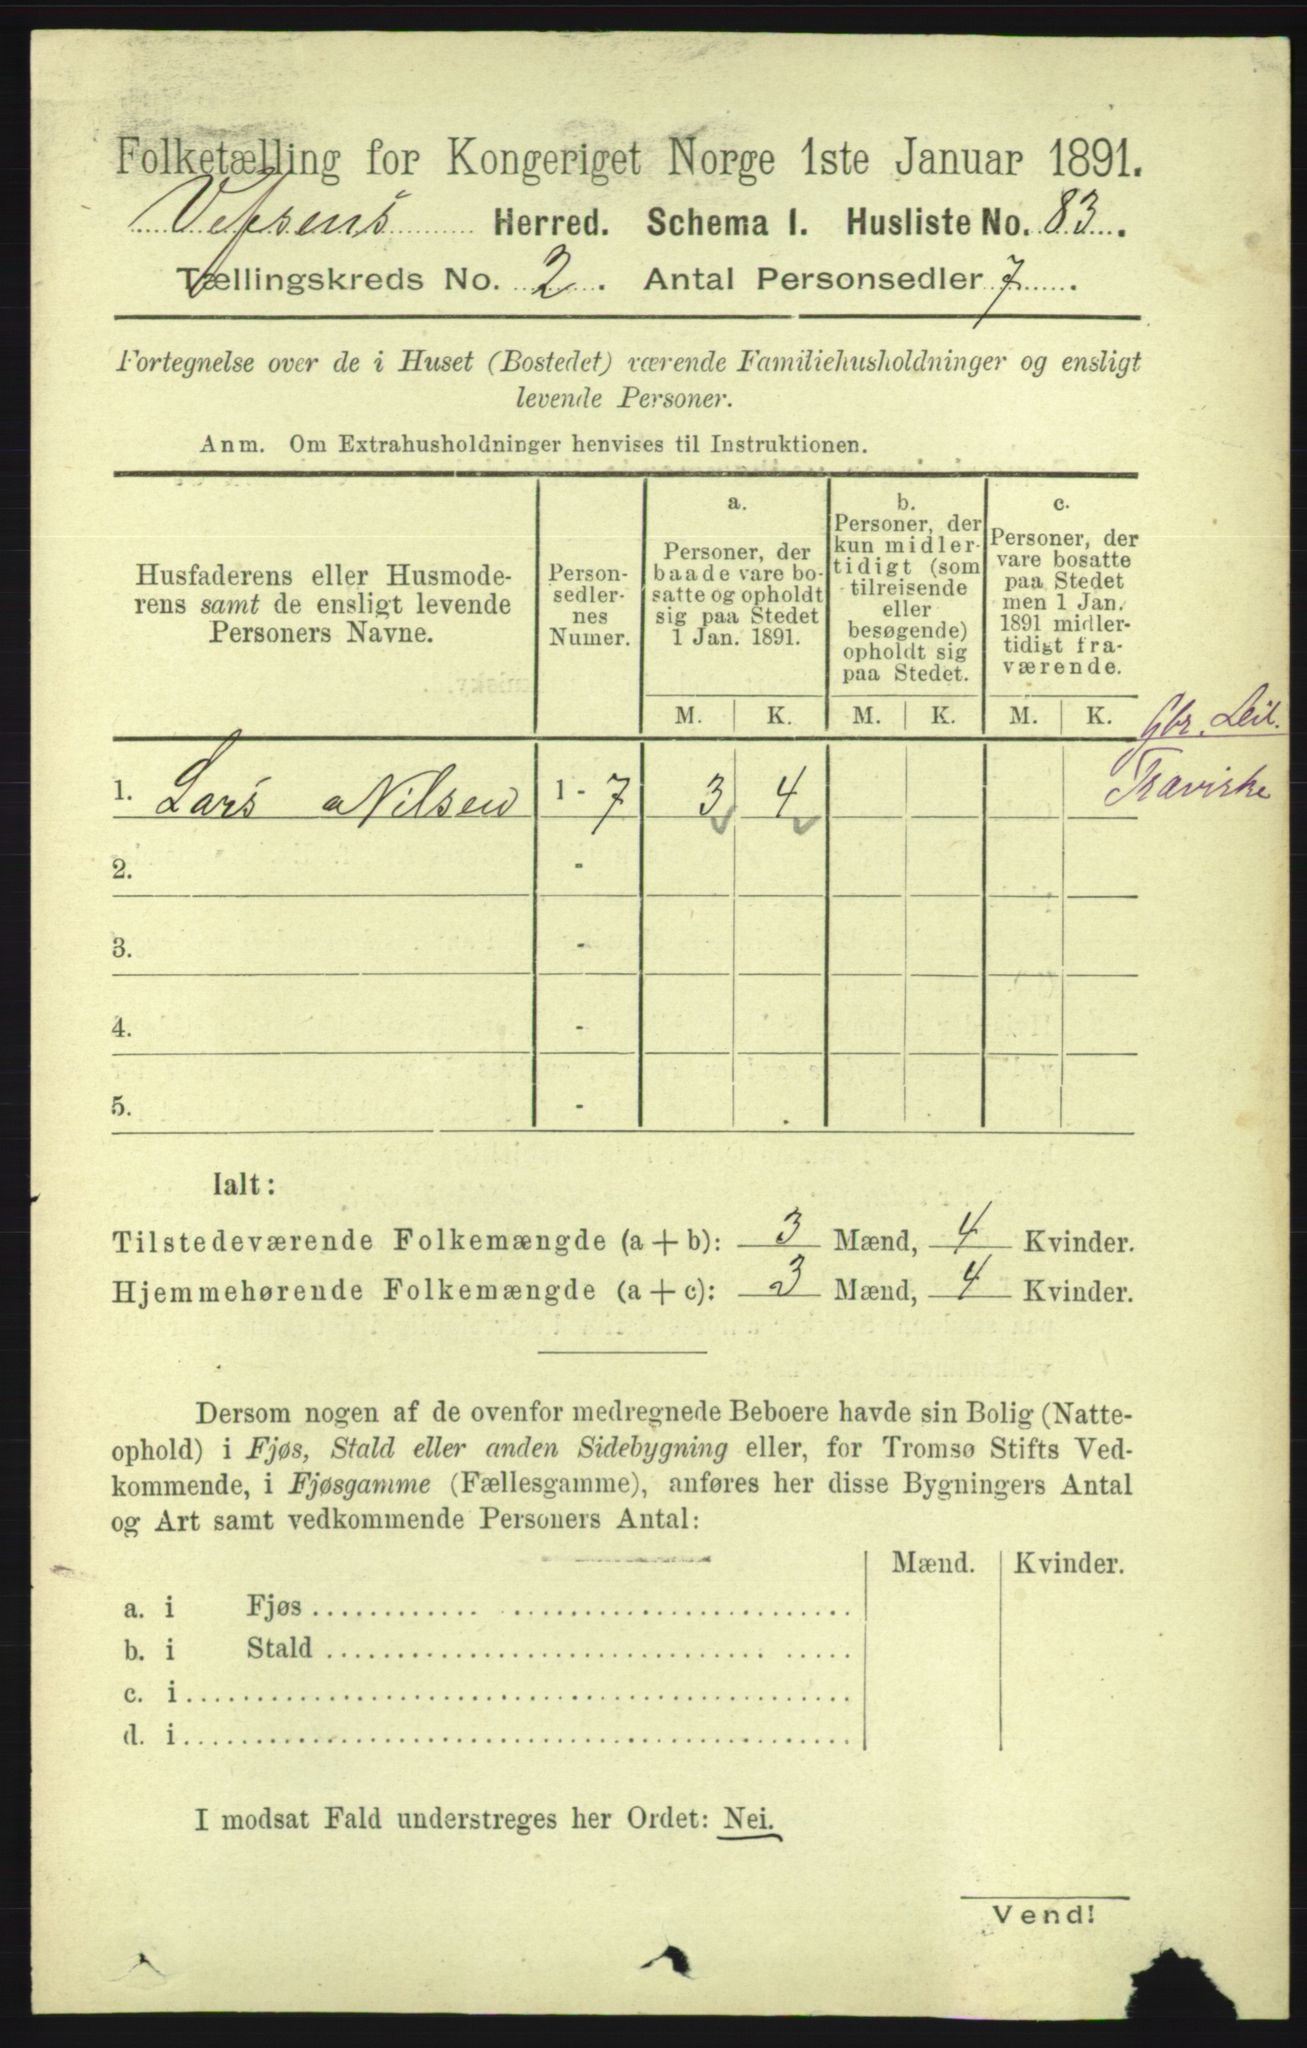 Folketælling for Kongeriget Norge 1ste Januar 1891.
Vefsens Herred. Schema I. Husliste No. 83.
Tællingskreds No. 2. Antal Personsedler 7.
Fortegnelse over de i Huset (Bostedet) værende Familiehusholdninger og ensligt
levende Personer.
Anm. Om Extrahusholdninger henvises til Instruktionen.
Husfaderens eller Husmode-
rens samt de ensligt levende
Personers Navne.
Person-
sedler-
nes
Numer.
a.
Personer, der
baade vare bo-
satte og opholdt
sig paa Stedet
1 Jan. 1891.
b.
Personer, der
kun midler-
tidigt (som
tilreisende
eller
besøgende)
opholdt sig
paa Stedet.
c.
Personer, der
vare bosatte
paa Stedet
men 1 Jan.
1891 midler-
tidigt fra-
værende.
M. K. M. K. M. K.
Gbr. Leil.
1. Lars Nilsen 1 - 7 3 4
2. -
3. -
4. -
5. -
Ialt:
Tilstedeværende Folkemængde (a + b): 3 Mænd, 4 Kvinder.
Hjemmehørende Folkemængde (a + c): 3 Mænd, 4 Kvinder.
Dersom nogen af de ovenfor medregnede Beboere havde sin Bolig (Natte-
ophold) i Fjøs, Stald eller anden Sidebygning eller, for Tromsø Stifts Ved-
kommende, i Fjøsgamme (Fællesgamme), anføres her disse Bygningers Antal
og Art samt vedkommende Personers Antal:
Mænd. Kvinder.
a. i Fjøs
b. i Stald
c. i
d. i
I modsat Fald understreges her Ordet: Nei.
Vend!